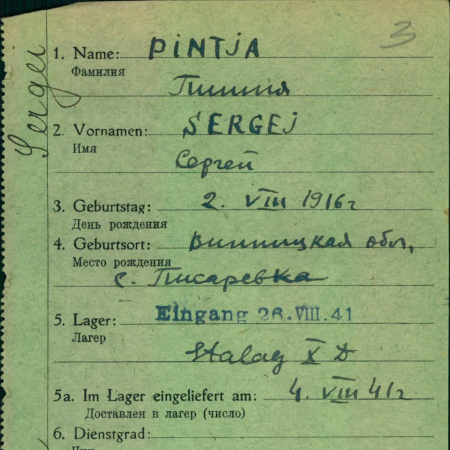 3
Sergei
1. Name: PINTJA
Фамилия
Пинтя
2. Vornamen: SERGEJ
Имя
Сергей
3. Geburtstag: 2. VIII 1916 г
День рождения
4. Geburtsort: Винницкая обл,
Место рождения
с. Писаревка
5. Lager: Eingang 26.VIII.41
Лагерь
Stalag X D
5a. Im Lager eingeliefert am: 4. VIII 41 г
Доставлен в лагерь (число)
6. Dienstgrad: